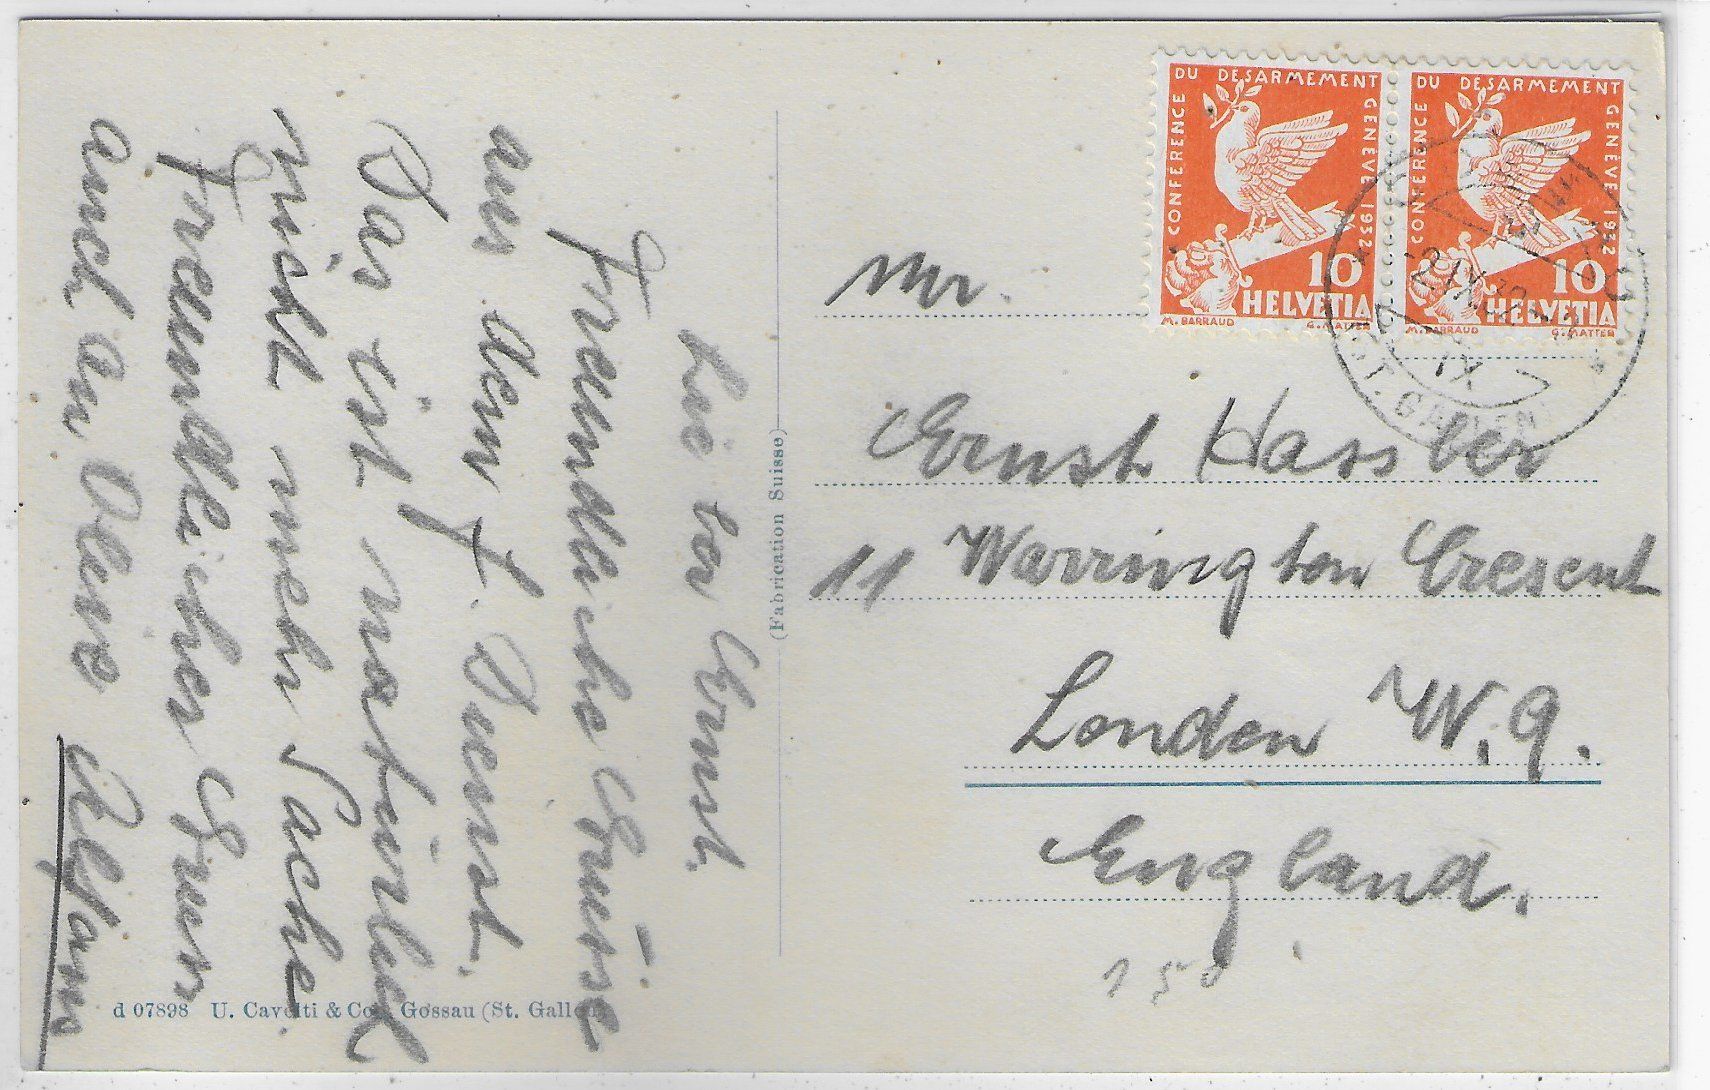 Lieber Ernst.
Freundliche Grüsse
aus dem F. Dienst.
Das ist natürlich
nicht mehr Sache
Freundlicher Gruss
auch an Olive
(Fabrication Suisse)
d 07898 U. Cavelti & Co., Gossau (St. Gallen)
CONFERENCE DU DESARMEMENT GENÈVE 1932
10
HELVETIA
M. BARRAUD G. MATTER
CONFERENCE DU DESARMEMENT GENÈVE 1932
10
HELVETIA
M. BARRAUD G. MATTER
ST. GALLEN
Mr.
Ernst Hassler
11 Warrington Cresent
London W. 9.
England.
150